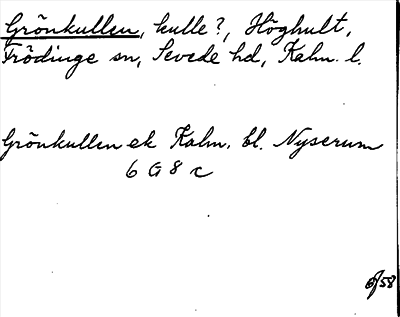 Grönkullen, kulle?, Höghult,
Frödinge sn, Sevede hd, Kalm. l.
Grönkullen ek Kalm. bl. Nyserum
6 G 8 c
58